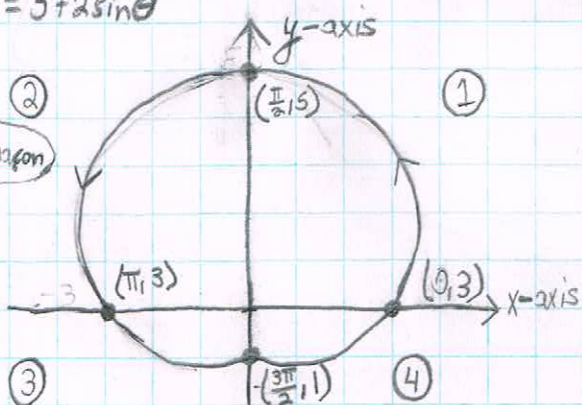 = 3+2sinθ
y-axis
②
①
(π/2, 5)
(π, 3)
(0, 3)
-3
x-axis
③
(3π/2, 1)
④